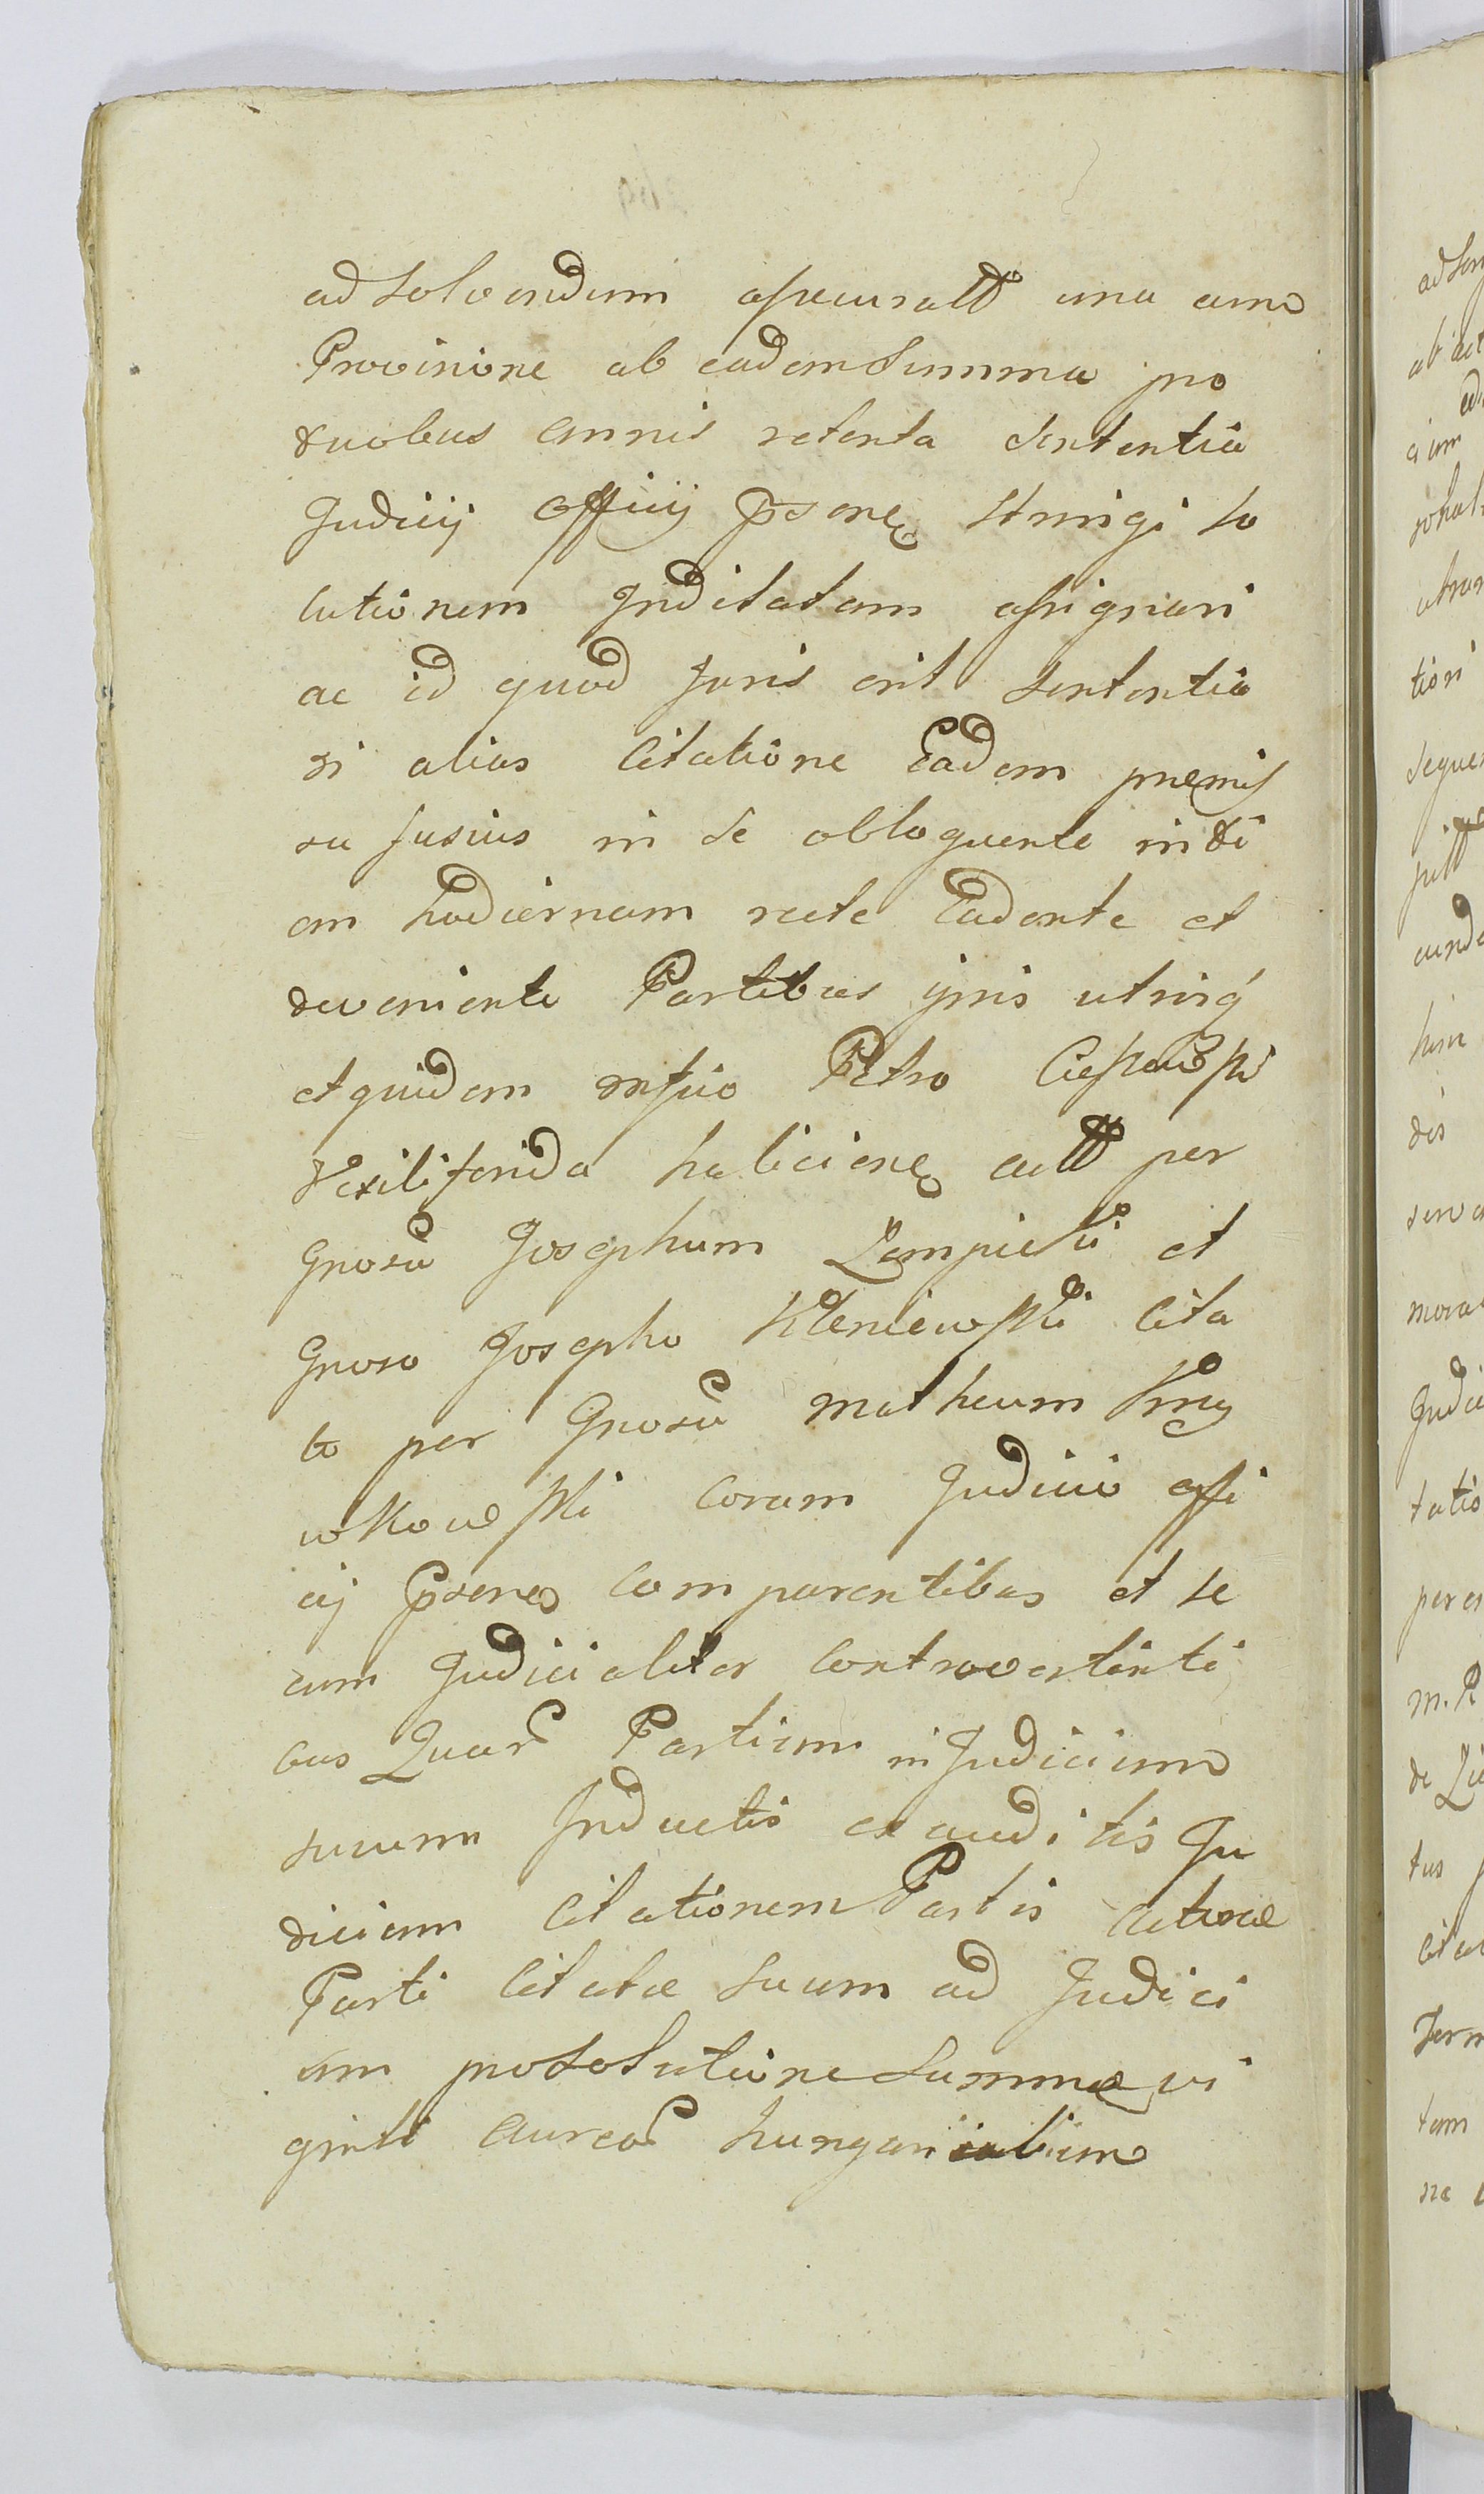 ad Solvendum assecuratt una cum
Provisione ab eadem Summa pro
duobus annis retenta Sententia
Judicij Officij pdsenē Stringi so
lutionem Inditatam assignari
ac id quod Juris erit Sententia
ri alias Citatione Eadem praemis
sa fusius in se obloquente in di
em hodiernam recte Cadente et
deveniente Partibus ipsis utrinq
et quidem Petro
Vexiliferida haliciens actt per
Gnosū Josephum Zempicki et
Gnoso Josepho Kleniewski Cita
to per Gnosū Matheum Krzy
wkowski Coram Judicio offi
cij pdsenē Comparentibus et se
cum Judicialiter Controvertenti
bus Quarū Partium in Judicium
suum Inductis exauditis Ju
dicium Citationem Partis actoreæ
Parti Citatæ Suum ad Judici
um pro Solutione Summæ vi
ginti aureorū hungaricalium